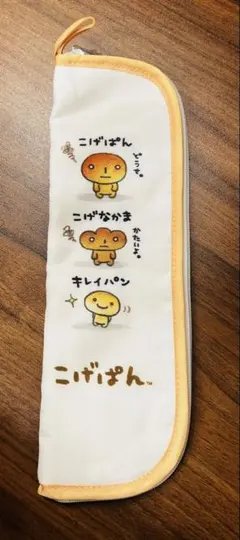 こげぱん
どうせ。
こげなかま
かたいよ。
キレイパン
こげぱん™